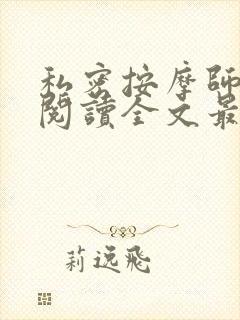 私密按摩師
閱讀全文最
莉逸飛